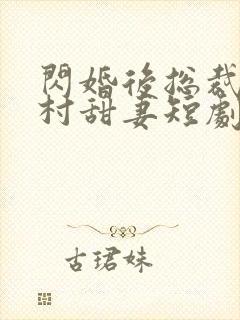 閃婚後總裁
村甜妻短劇
古珺妹